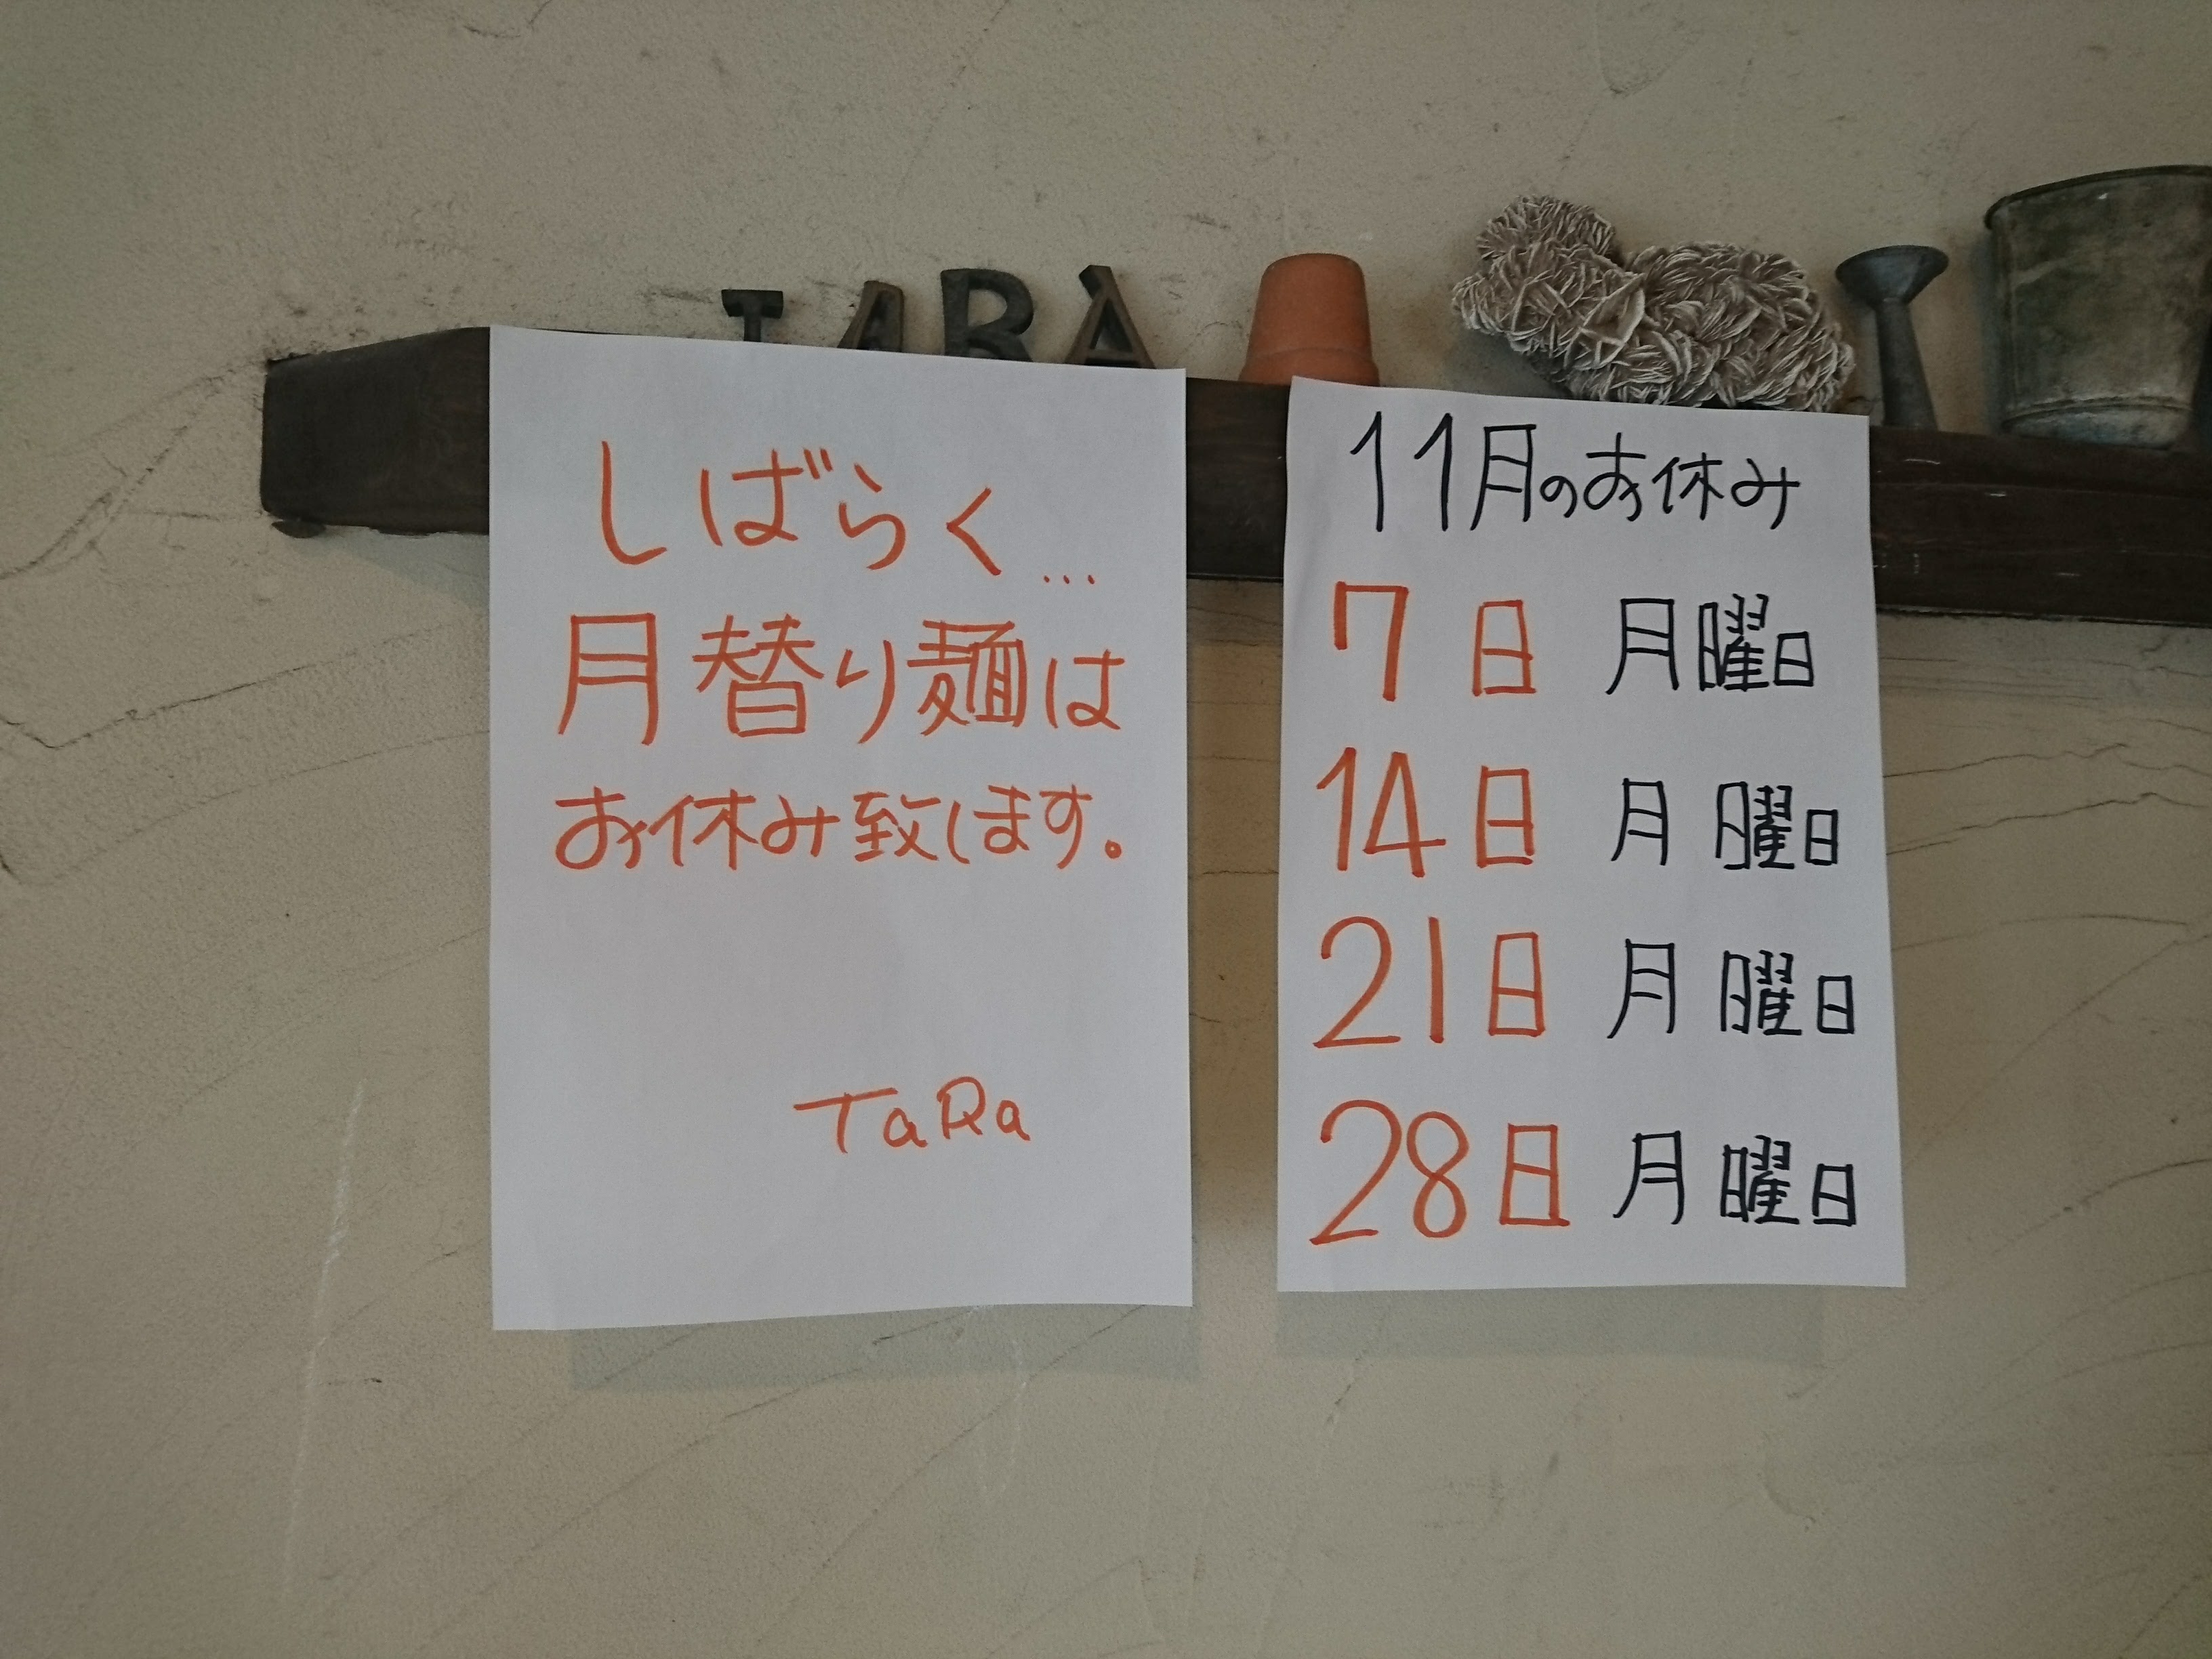 TARA
しばらく...
月替り麺は
お休み致します。
TaRa
11月のお休み
7日 月曜日
14日 月曜日
21日 月曜日
28日 月曜日